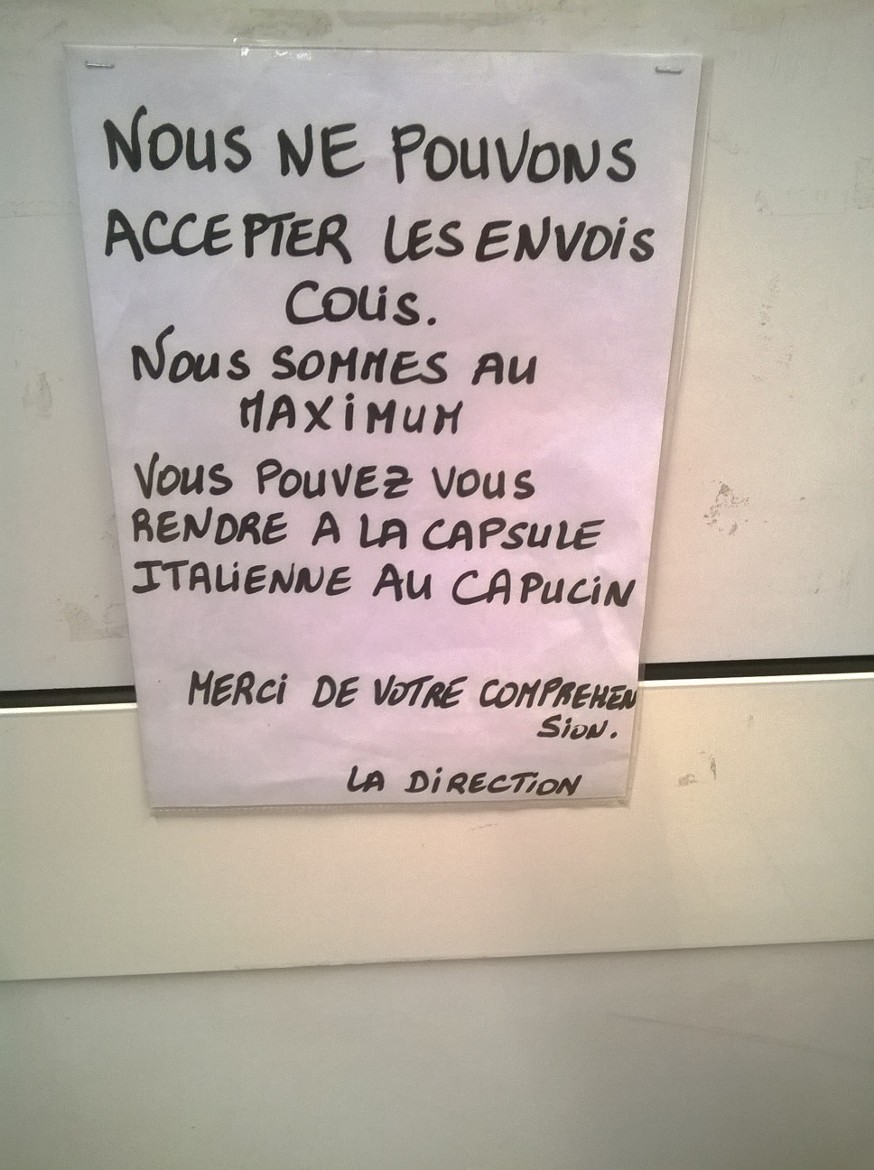 NOUS NE POUVONS
ACCEPTER LES ENVOIS
COLIS.
NOUS SOMMES AU
MAXIMUM
VOUS POUVEZ VOUS
RENDRE A LA CAPSULE
ITALIENNE AU CAPUCIN
MERCI DE VOTRE COMPREHEN
SION.
LA DIRECTION